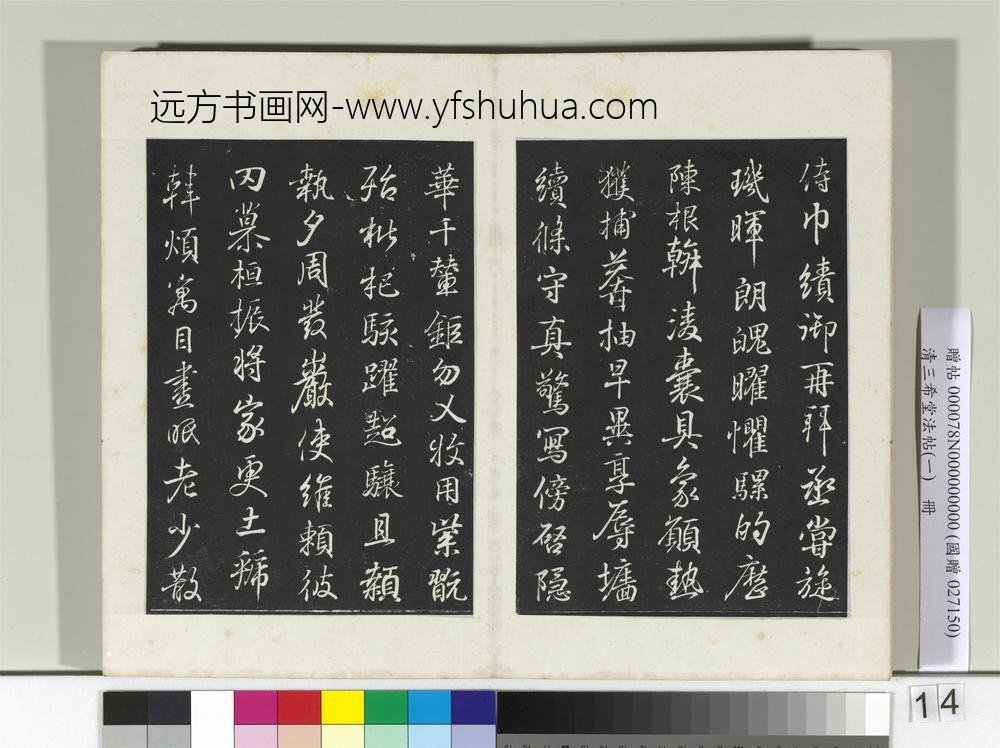 远方书画网-www.yfshuhua.com
侍巾績御再拜丞嘗旋
璣暉朗魄曜懼騾的歷
陳根翰凌囊具象願熱
獲捕莽抽早異享辱墻
續條守真驚寫傍啓隱
華千輦鉅勿乂牧用業翫
殆枇杷駭躍超驤且顙
執夕周發巖使維賴彼
罔纂桓振將家更土號
韓煩寓目晝眠老少散
贈帖 000078N000000000 (國贈 027150)
清三希堂法帖(一) 冊
14